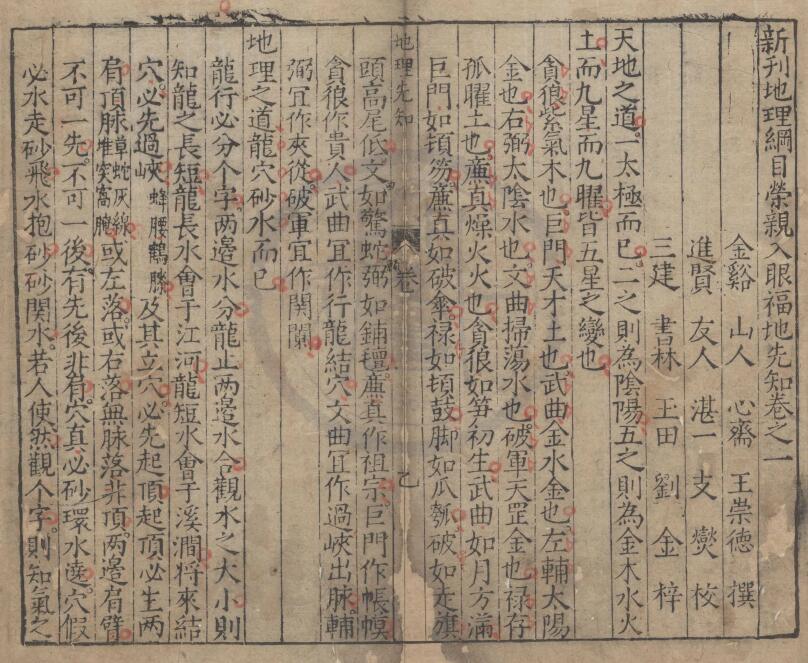 新刊地理綱目榮親入眼福地先知卷之一
金谿 山人 心齋 王崇德 撰
進賢 友人 湛一 支爕 校
三建 書林 玉田 劉金 梓
天地之道。一太極而已。二之則為陰陽五之則為金木水火
土而九星而九曜皆五星之變也
貪狼紫氣木也。巨門天才土也。武曲金水金也。左輔太陽
金也右弼太陰水也文曲掃蕩水也。破軍天罡金也祿存
孤曜土也。廉貞燥火火也貪狼如笋初生武曲如月方滿
巨門如頓笏。廉貞如破傘。祿如頓鼓脚如瓜瓠破如走旗
地理先知 卷一 乙
頭高尾低。文如驚蛇弼如鋪氊。廉貞作祖宗。巨門作帳幙
貪狼作貴人武曲冝作行龍結穴文曲冝作過峽出脉。輔
弼冝作夾從。破軍冝作関闌
地理之道龍穴砂水而已
龍行必分个字。两邉水分龍止两邉水合觀水之大小則
知龍之長短龍長水會于江河龍短水會于溪澗将來結
穴。必先過峽蜂腰鶴膝及其立穴。必先起頂起頂必生两
肩頂脉草蛇灰線堆突窩䏢或左落。或右落無脉落非頂。两邉肩臂
不可一先。不可一後。有先後非有。穴真必砂環水遶。穴假
必水走砂飛水抱砂砂関水。若人使然觀个字。則知氣之